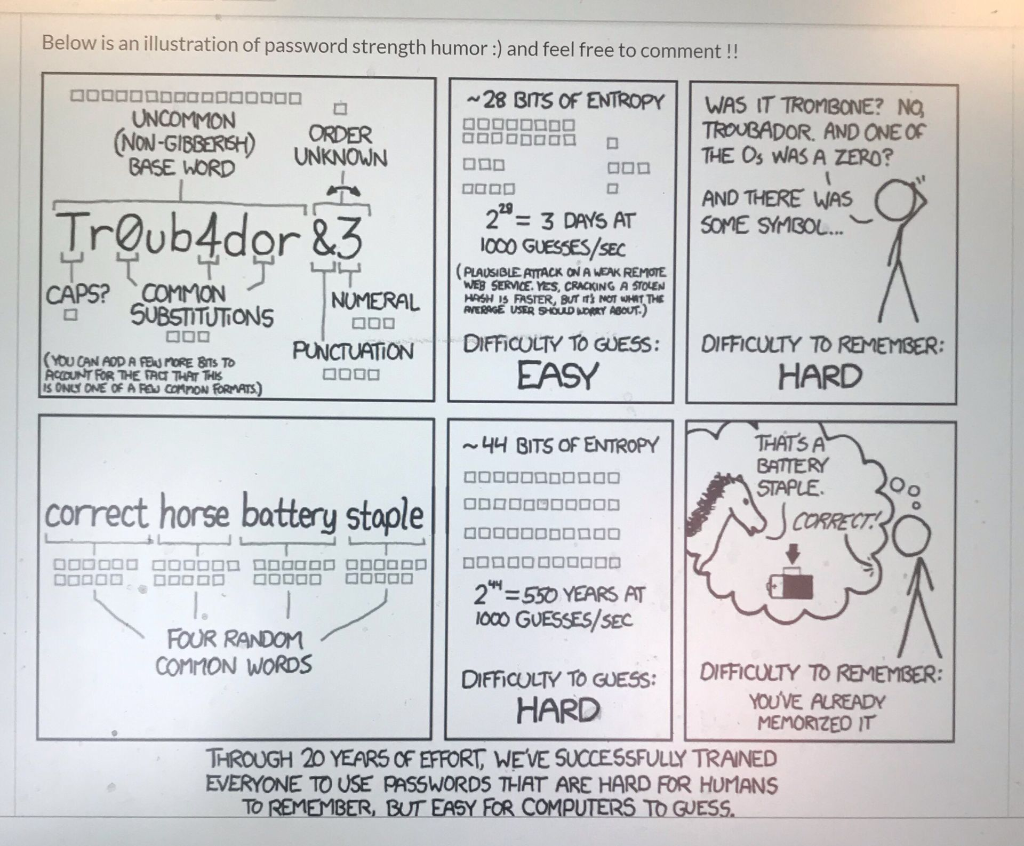 Below is an illustration of password strength humor :) and feel free to comment !!
UNCOMMON
(NON-GIBBERISH)
BASE WORD
ORDER
UNKNOWN
Tr0ub4dor &3
CAPS?
COMMON
SUBSTITUTIONS
NUMERAL
PUNCTUATION
(YOU CAN ADD A FEW MORE BITS TO
ACCOUNT FOR THE FACT THAT THIS
IS ONLY ONE OF A FEW COMMON FORMATS.)
~28 BITS OF ENTROPY
2^28 = 3 DAYS AT
1000 GUESSES/SEC
(PLAUSIBLE ATTACK ON A WEAK REMOTE
WEB SERVICE. YES, CRACKING A STOLEN
HASH IS FASTER, BUT IT'S NOT WHAT THE
AVERAGE USER SHOULD WORRY ABOUT.)
DIFFICULTY TO GUESS:
EASY
WAS IT TROMBONE? NO,
TROUBADOR. AND ONE OF
THE Os WAS A ZERO?
AND THERE WAS
SOME SYMBOL...
DIFFICULTY TO REMEMBER:
HARD
correct horse battery staple
FOUR RANDOM
COMMON WORDS
~44 BITS OF ENTROPY
2^44 = 550 YEARS AT
1000 GUESSES/SEC
DIFFICULTY TO GUESS:
HARD
THAT'S A
BATTERY
STAPLE.
CORRECT!
DIFFICULTY TO REMEMBER:
YOU'VE ALREADY
MEMORIZED IT
THROUGH 20 YEARS OF EFFORT, WE'VE SUCCESSFULLY TRAINED
EVERYONE TO USE PASSWORDS THAT ARE HARD FOR HUMANS
TO REMEMBER, BUT EASY FOR COMPUTERS TO GUESS.